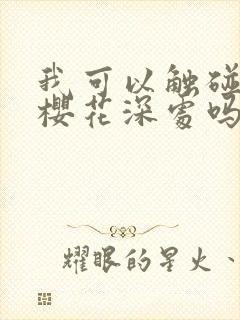 我可以触碰
樱花深处吗
耀眼的星火、